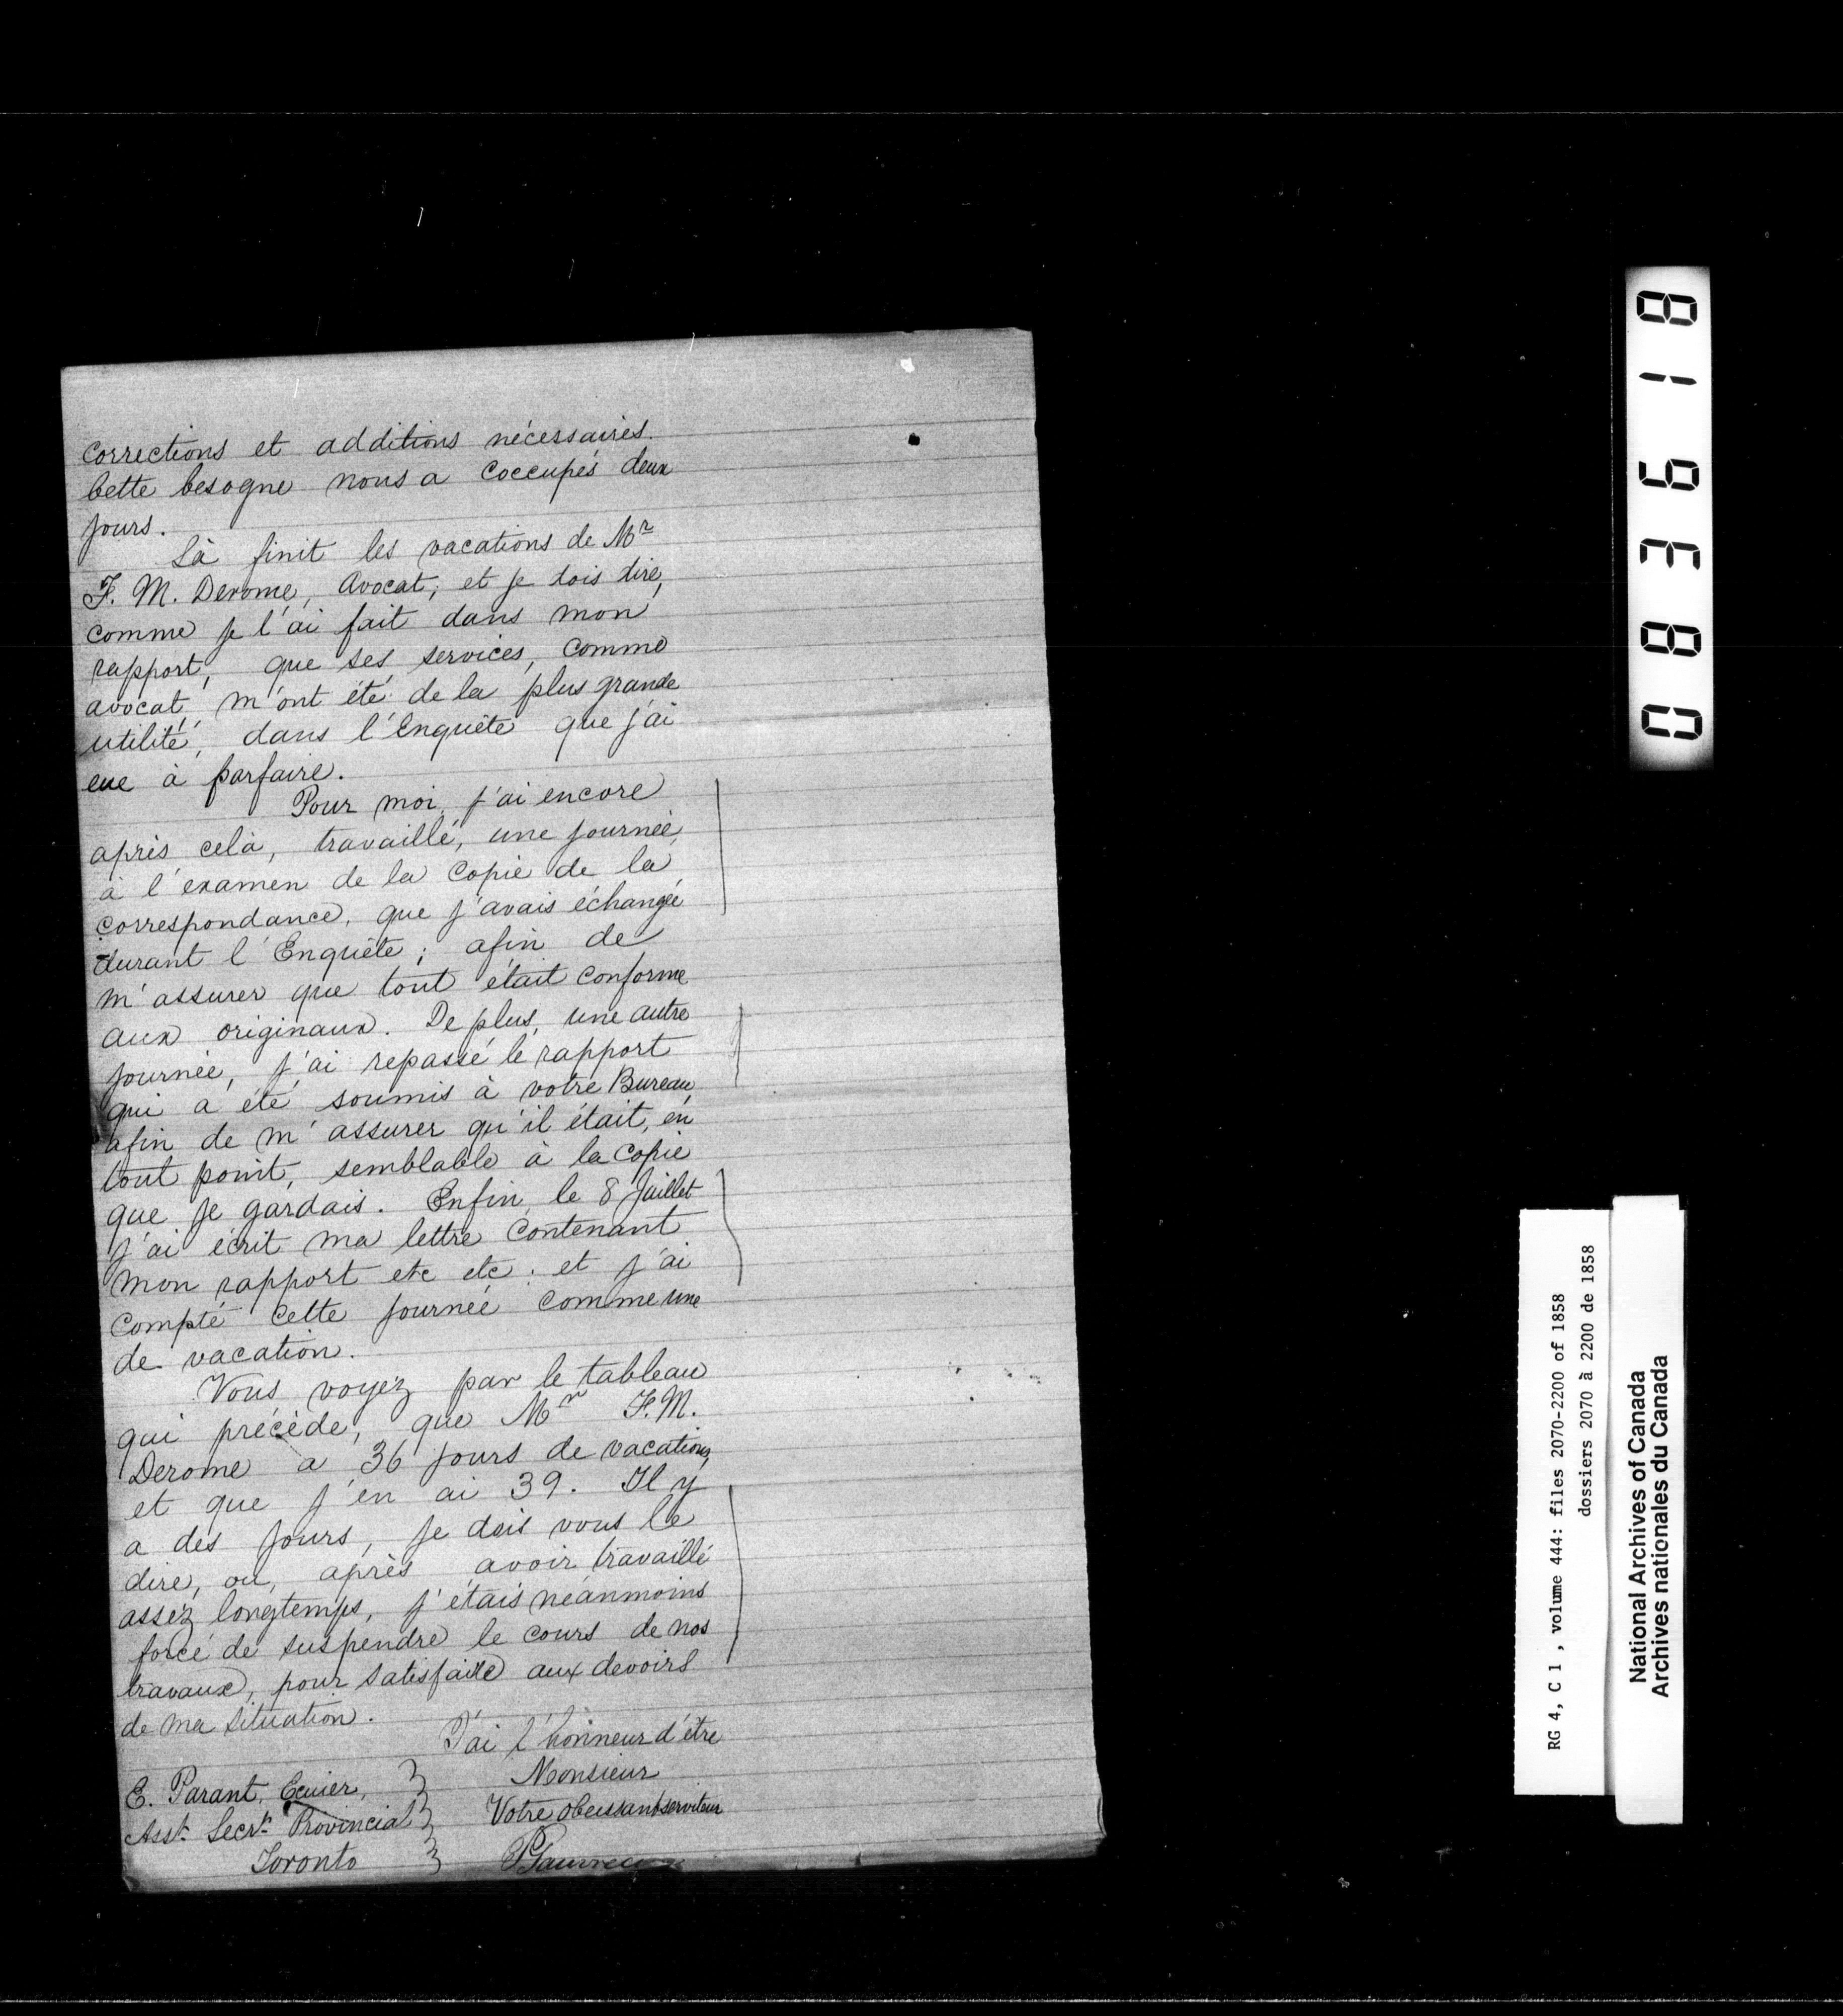 corrections et additions nécessaires.
Cette besogne nous a occupés deux
jours.
Là finit les vacations de Mr
F. M. Derome, Avocat; et je dois dire,
comme je l'ai fait dans mon
rapport, que ses services, comme
avocat, m'ont été de la plus grande
utilité, dans l'Enquête que j'ai
eue à parfaire.
Pour moi, j'ai encore
après celà, travaillé, une journée,
à l'examen de la Copie de la
correspondance, que j'avais échangée
durant l'Enquête; afin de
m'assurer que tout était conforme
aux originaux. De plus, une autre
journée, j'ai repassé le rapport
qui a été soumis à votre Bureau,
afin de m'assurer qu'il était, en
tout point, semblable à la Copie
que je gardais. Enfin, le 8 Juillet
j'ai écrit ma lettre contenant
mon rapport etc etc; et j'ai
compté cette journée comme une
de vacation.
Vous voyez par le tableau
qui précède, que Mr F. M.
Derome a 36 jours de vacations,
et que j'en ai 39. Il y
a des jours, je dois vous le
dire, ou, après avoir travaillé
assez longtemps, j'étais néanmoins
forcé de suspendre le cours de nos
travaux, pour satisfaire aux devoirs
de ma situation.
J'ai l'honneur d'être
Monsieur
Votre obéissant serviteur
E. Parant, Ecuier,
Asst. Secrt. Provincial
Toronto
083618
RG 4, C 1 , volume 444: files 2070-2200 of 1858
dossiers 2070 à 2200 de 1858
National Archives of Canada
Archives nationales du Canada